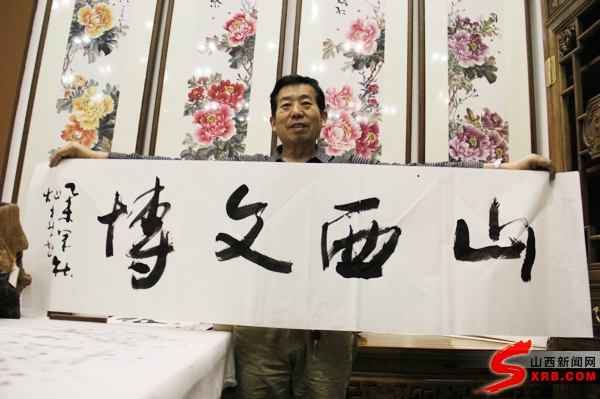 山西文博
山西新闻网
SXRB.COM